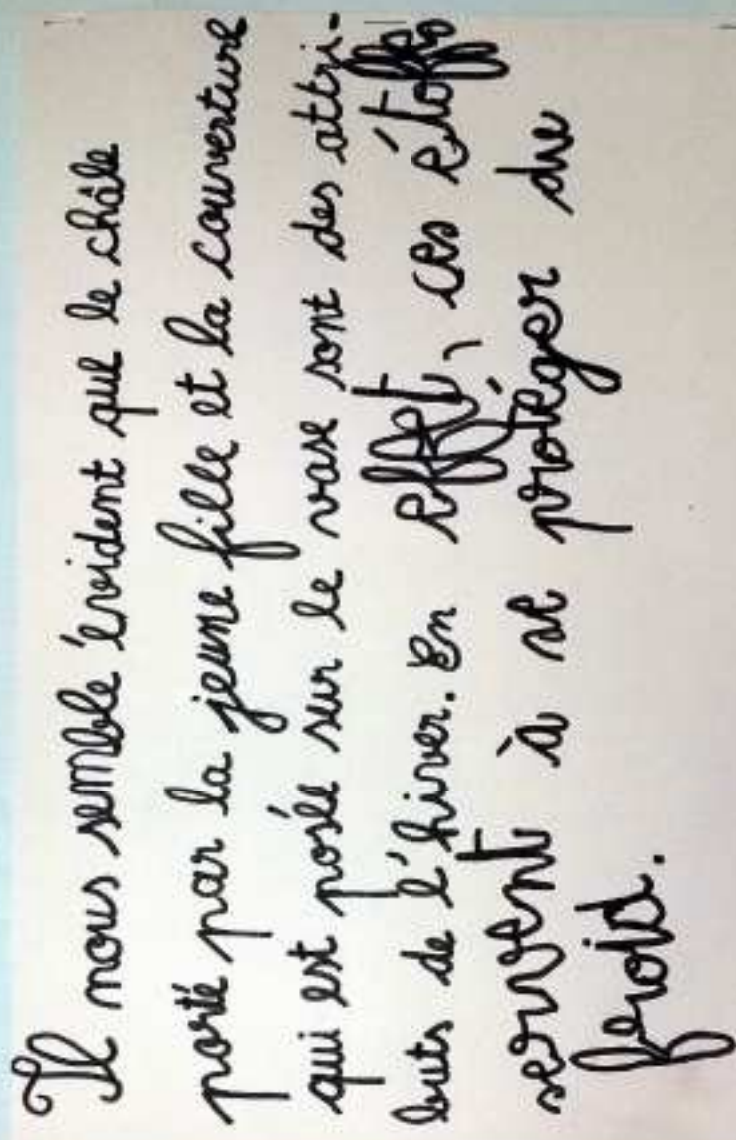 Il nous semble évident que le châle
porté par la jeune fille et la couverture
qui est posée sur le vase sont des attri-
buts de l'hiver. En effet, ces étoffes
servent à se protéger du
froid.